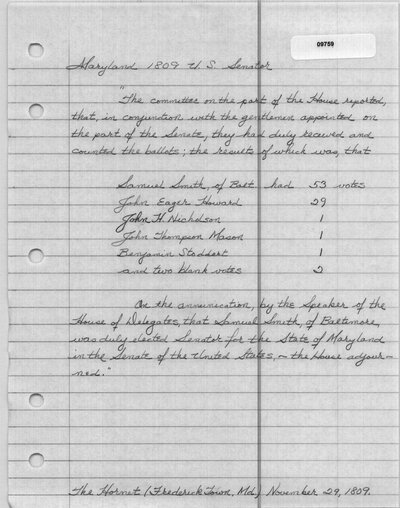 09759
Maryland 1809 U. S. Senator
"The committee on the part of the House reported,
that, in conjunction with the gentlemen appointed on
the part of the Senate, they had duly received and
counted the ballots; the results of which was, that
Samuel Smith, of Balt. had 53 votes
John Eager Howard 29
John H. Nicholson 1
John Thompson Mason 1
Benjamin Stoddert 1
and two blank votes 2
On the annunication, by the Speaker of the
House of Delegates, that Samuel Smith, of Baltimore,
was duly elected Senator for the State of Maryland
in the Senate of the United States, - the House adjour-
ned."
The Hornet (Frederick Town, Md.) November 29, 1809.